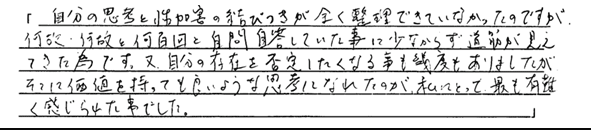 「自分の思考と性加害の結びつきが全く整理できていなかったのですが、
何故・何故と何百回と自問自答していた事に少なからず道筋が見え
てきた為です。又、自分の存在を否定したくなる事も幾度もありましたが
そこに価値を持っても良いような思考になれたのが、私にとって最も有難
く感じられた事でした。」